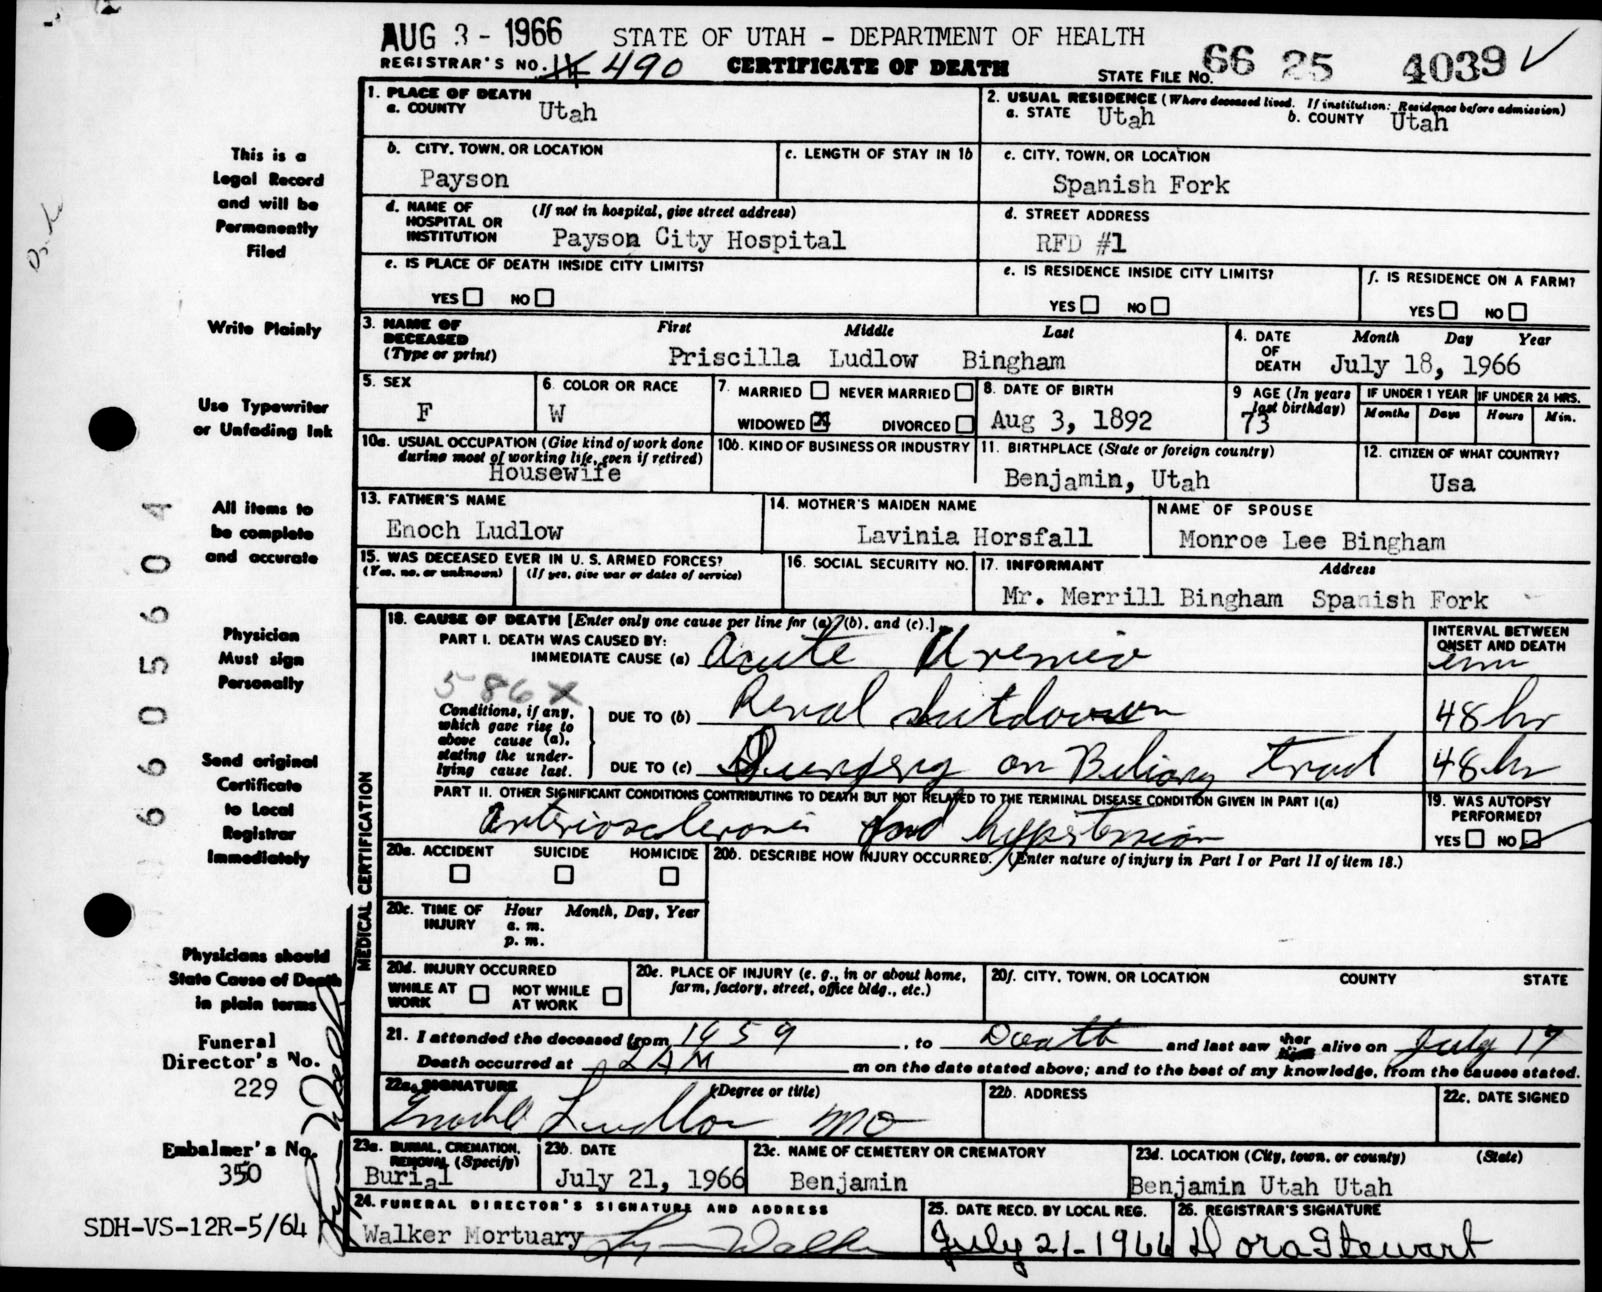 AUG 3 - 1966 STATE OF UTAH - DEPARTMENT OF HEALTH
REGISTRAR'S NO. 490 CERTIFICATE OF DEATH STATE FILE NO. 66 25 4039 ✓
1. PLACE OF DEATH
a. COUNTY Utah
2. USUAL RESIDENCE (Where deceased lived. If institution: Residence before admission)
a. STATE Utah b. COUNTY Utah
b. CITY, TOWN, OR LOCATION
Payson
c. LENGTH OF STAY IN 1b
c. CITY, TOWN, OR LOCATION
Spanish Fork
d. NAME OF HOSPITAL OR INSTITUTION (If not in hospital, give street address)
Payson City Hospital
d. STREET ADDRESS
RFD #1
e. IS PLACE OF DEATH INSIDE CITY LIMITS?
YES NO
e. IS RESIDENCE INSIDE CITY LIMITS?
YES NO
f. IS RESIDENCE ON A FARM?
YES NO
3. NAME OF DECEASED (Type or print) First Middle Last
Priscilla Ludlow Bingham
4. DATE OF DEATH Month Day Year
July 18, 1966
5. SEX
F
6. COLOR OR RACE
W
7. MARRIED NEVER MARRIED
WIDOWED X DIVORCED
8. DATE OF BIRTH
Aug 3, 1892
9 AGE (In years last birthday)
73
IF UNDER 1 YEAR IF UNDER 24 HRS.
Months Days Hours Min.
10a. USUAL OCCUPATION (Give kind of work done during most of working life, even if retired)
Housewife
10b. KIND OF BUSINESS OR INDUSTRY
11. BIRTHPLACE (State or foreign country)
Benjamin, Utah
12. CITIZEN OF WHAT COUNTRY?
Usa
13. FATHER'S NAME
Enoch Ludlow
14. MOTHER'S MAIDEN NAME
Lavinia Horsfall
NAME OF SPOUSE
Monroe Lee Bingham
15. WAS DECEASED EVER IN U. S. ARMED FORCES?
(Yes, no, or unknown) (If yes, give war or dates of service)
16. SOCIAL SECURITY NO.
17. INFORMANT Address
Mr. Merrill Bingham Spanish Fork
MEDICAL CERTIFICATION
18. CAUSE OF DEATH [Enter only one cause per line for (a), (b), and (c).]
PART I. DEATH WAS CAUSED BY:
IMMEDIATE CAUSE (a) Acute Uremia
INTERVAL BETWEEN ONSET AND DEATH
586X
Conditions, if any, which gave rise to above cause (a), stating the underlying cause last.
DUE TO (b) Renal shutdown 48 hr
DUE TO (c) Surgery on Biliary tract 48 hr
PART II. OTHER SIGNIFICANT CONDITIONS CONTRIBUTING TO DEATH BUT NOT RELATED TO THE TERMINAL DISEASE CONDITION GIVEN IN PART I(a)
Arteriosclerosis and hypertension
19. WAS AUTOPSY PERFORMED?
YES NO ✓
20a. ACCIDENT SUICIDE HOMICIDE
20b. DESCRIBE HOW INJURY OCCURRED. (Enter nature of injury in Part I or Part II of item 18.)
20c. TIME OF INJURY Hour Month, Day, Year
a. m.
p. m.
20d. INJURY OCCURRED
WHILE AT WORK NOT WHILE AT WORK
20e. PLACE OF INJURY (e. g., in or about home, farm, factory, street, office bldg., etc.)
20f. CITY, TOWN, OR LOCATION COUNTY STATE
21. I attended the deceased from 1959, to Death and last saw her alive on July 17
Death occurred at 2 AM m on the date stated above; and to the best of my knowledge, from the causes stated.
22a. SIGNATURE (Degree or title)
Enoch Ludlow MD
22b. ADDRESS
22c. DATE SIGNED
23a. BURIAL, CREMATION, REMOVAL (Specify)
Burial
23b. DATE
July 21, 1966
23c. NAME OF CEMETERY OR CREMATORY
Benjamin
23d. LOCATION (City, town, or county) (State)
Benjamin Utah Utah
24. FUNERAL DIRECTOR'S SIGNATURE AND ADDRESS
Walker Mortuary Lynn Walker
25. DATE RECD. BY LOCAL REG.
July 21-1966
26. REGISTRAR'S SIGNATURE
Dora Stewart
This is a
Legal Record
and will be
Permanently
Filed
Write Plainly
Use Typewriter
or Unfading Ink
All items to
be complete
and accurate
Physician
Must sign
Personally
Send original
Certificate
to Local
Registrar
Immediately
Physicians should
State Cause of Death
in plain terms
Funeral
Director's No.
229
Embalmer's No.
350
Lynn Walker
SDH-VS-12R-5/64
6605604